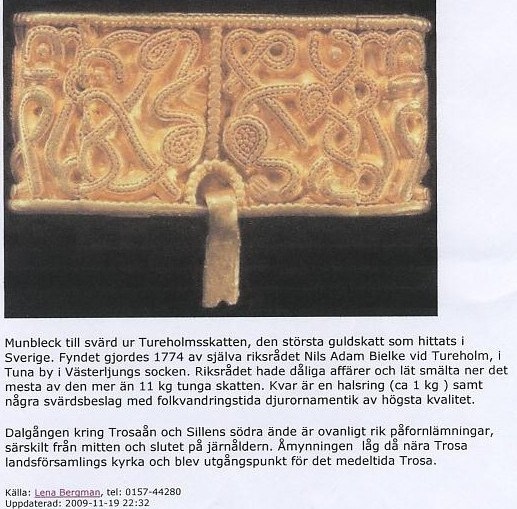 Munbleck till svärd ur Tureholmsskatten, den största guldskatt som hittats i
Sverige. Fyndet gjordes 1774 av själva riksrådet Nils Adam Bielke vid Tureholm, i
Tuna by i Västerljungs socken. Riksrådet hade dåliga affärer och lät smälta ner det
mesta av den mer än 11 kg tunga skatten. Kvar är en halsring (ca 1 kg ) samt
några svärdsbeslag med folkvandringstida djurornamentik av högsta kvalitet.

Dalgången kring Trosaån och Sillens södra ände är ovanligt rik påfornlämningar,
särskilt från mitten och slutet på järnåldern. Åmynningen låg då nära Trosa
landsförsamlings kyrka och blev utgångspunkt för det medeltida Trosa.

Källa: Lena Bergman, tel: 0157-44280
Uppdaterad: 2009-11-19 22:32